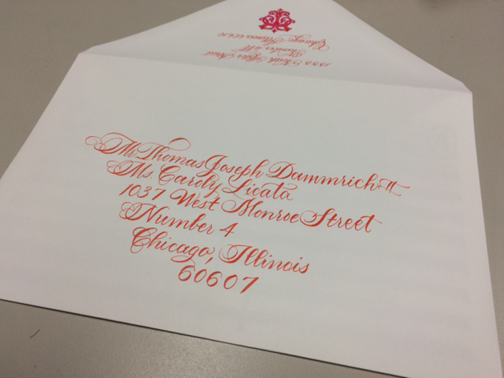 Mr Thomas Joseph Dammrich II
Ms Caroly Licata
1037 West Monroe Street
Number 4
Chicago, Illinois
60607